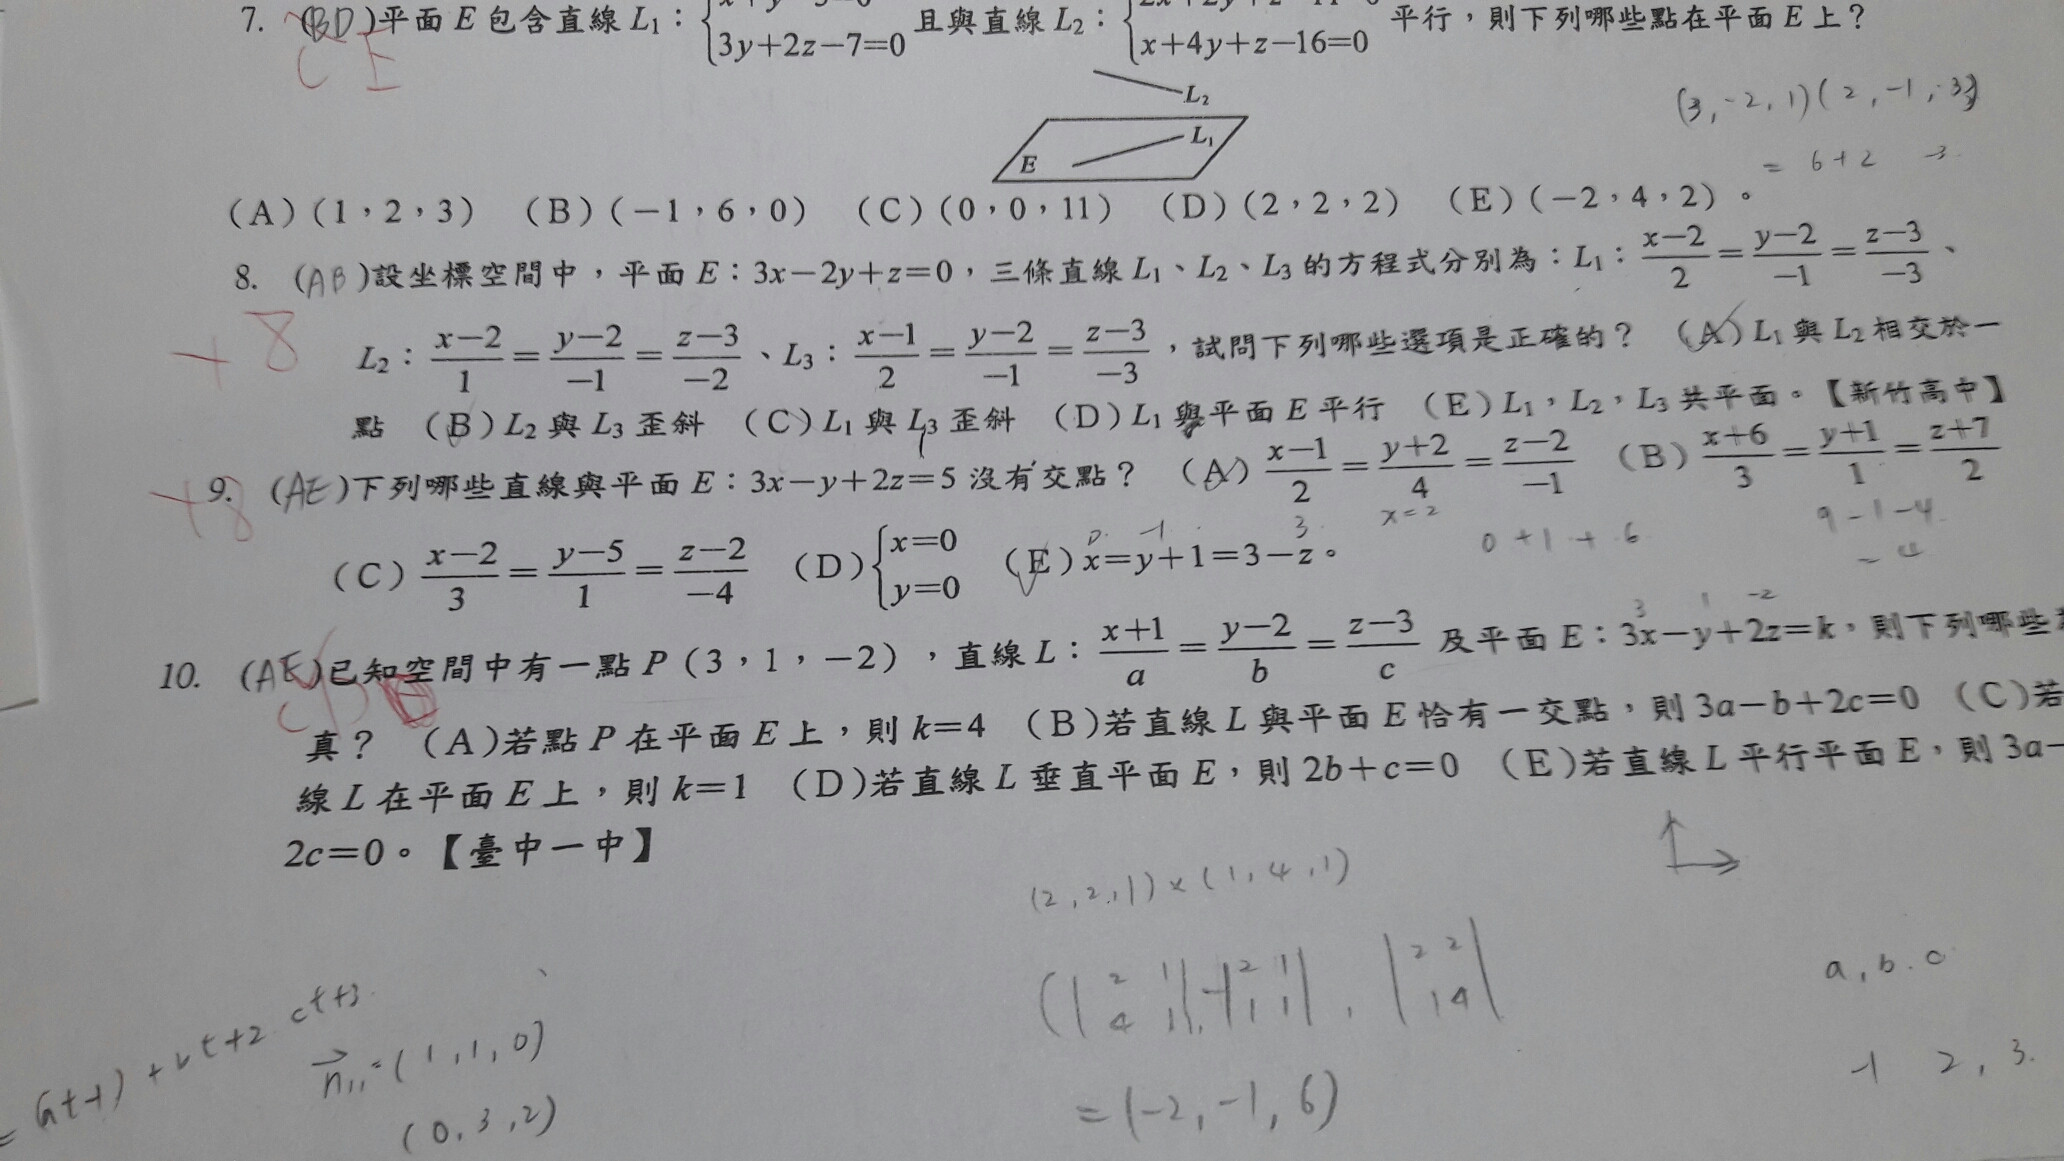 7. (BD)平面 E 包含直線 L₁：{ 3y+2z−7=0 且與直線 L₂：{ x+4y+z−16=0 平行，則下列哪些點在平面 E 上？
C E
L₂
L₁
E
(3,-2,1)(2,-1,-3)
= 6+2 -3
(A)(1，2，3) (B)(−1，6，0) (C)(0，0，11) (D)(2，2，2) (E)(−2，4，2)。
8. (AB)設坐標空間中，平面 E：3x−2y+z=0，三條直線 L₁、L₂、L₃ 的方程式分別為：L₁：(x−2)/2=(y−2)/−1=(z−3)/−3、
+8
L₂：(x−2)/1=(y−2)/−1=(z−3)/−2、L₃：(x−1)/2=(y−2)/−1=(z−3)/−3，試問下列哪些選項是正確的？ (A)L₁ 與 L₂ 相交於一
點 (B)L₂ 與 L₃ 歪斜 (C)L₁ 與 L₃ 歪斜 (D)L₁ 與平面 E 平行 (E)L₁，L₂，L₃ 共平面。【新竹高中】
+8
9. (AE)下列哪些直線與平面 E：3x−y+2z=5 沒有交點？ (A)(x−1)/2=(y+2)/4=(z−2)/−1 (B)(x+6)/3=(y+1)/1=(z+7)/2
x=2
0+1+6
9-1-4
(C)(x−2)/3=(y−5)/1=(z−2)/−4 (D){x=0 y=0 (E)x=y+1=3−z。
0 -1 3
3 1 -2
10. (AE)已知空間中有一點 P(3，1，−2)，直線 L：(x+1)/a=(y−2)/b=(z−3)/c 及平面 E：3x−y+2z=k，則下列哪些
真？ (A)若點 P 在平面 E 上，則 k=4 (B)若直線 L 與平面 E 恰有一交點，則 3a−b+2c=0 (C)若
線 L 在平面 E 上，則 k=1 (D)若直線 L 垂直平面 E，則 2b+c=0 (E)若直線 L 平行平面 E，則 3a−
2c=0。【臺中一中】
(2,2,1)×(1,4,1)
(|2 1 4 1|,-|2 1 1 1|,|2 2 1 4|)
=(-2,-1,6)
a,b.c
-1 2,3.
+bt+2 ct+3
n⃗₁₁=(1,1,0)
(0,3,2)